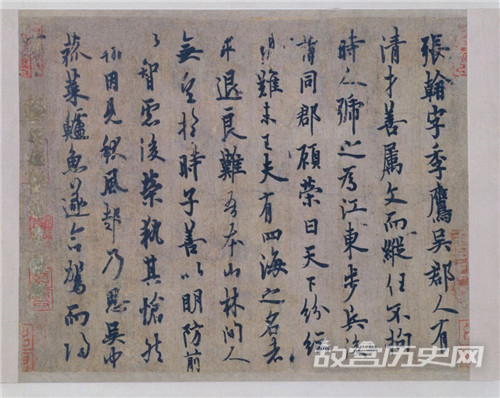 張翰字季鷹吳郡人有
清才善属文而縱任不拘
時人號之為江東步兵後
謂同郡顧榮曰天下紛紜
禍難未已夫有四海之名者
求退良難吾本山林間人
無望於時子善以明防前
以智慮後榮執其愴然
翰因見秋風起乃思吳中
菰菜鱸魚遂命駕而歸
故宫历史网